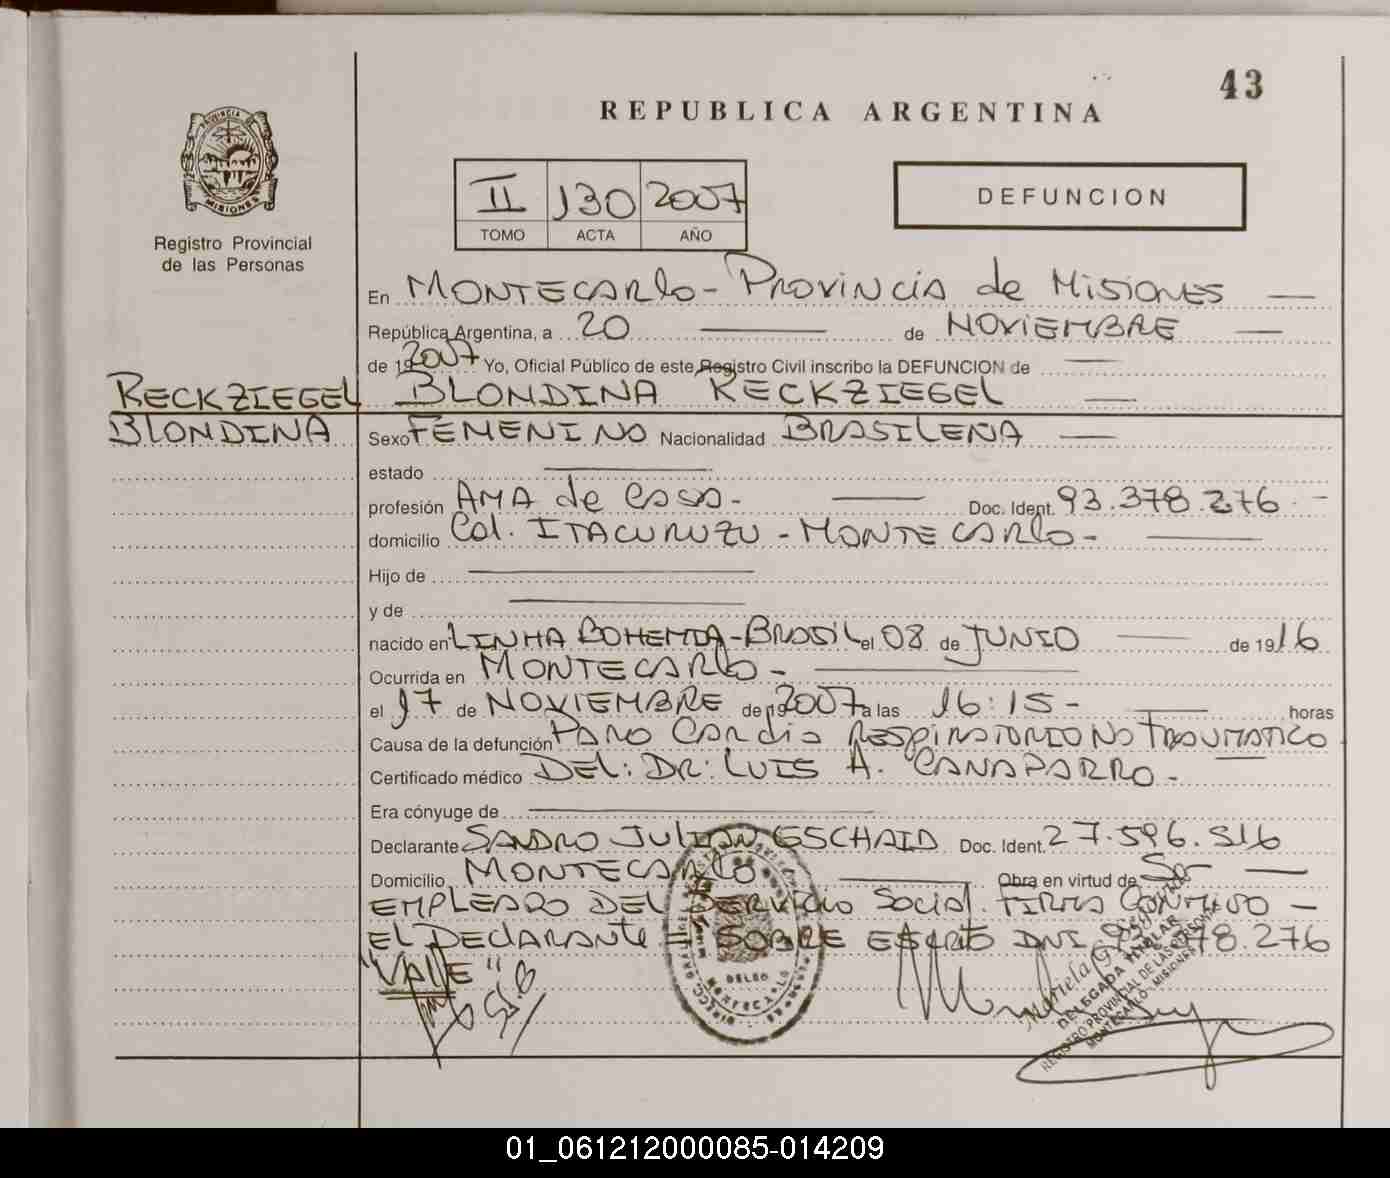 43
REPUBLICA ARGENTINA
PROVINCIA DE
MISIONES
Registro Provincial
de las Personas
II 130 2007
TOMO ACTA AÑO
DEFUNCION
En MONTECARLO - PROVINCIA de MISIONES
República Argentina, a 20 de NOVIEMBRE
de 19 2007 Yo, Oficial Público de este Registro Civil inscribo la DEFUNCION de
RECKZIEGEL BLONDINA RECKZIEGEL
BLONDINA Sexo FEMENINO Nacionalidad BRASILENA
estado
profesión AMA de CASA - Doc. Ident. 93.378.276
domicilio Col. ITACURUZU - MONTECARLO -
Hijo de
y de
nacido en LINHA BOHEMIA - BRASIL el 08 de JUNIO de 1916
Ocurrida en MONTECARLO -
el 17 de NOVIEMBRE de 19 2007 a las 16:15 - horas
Causa de la defunción PARO CARDIO RESPIRATORIO NO TRAUMATICO
Certificado médico DEL: DR: LUIS A. CANAPARRO -
Era cónyuge de
Declarante SANDRO JULIAN ESCHAID Doc. Ident. 27.596.516
Domicilio MONTECARLO Obra en virtud de Ser
EMPLEADO DEL SERVICIO SOCIAL. FIRMA CONMIGO -
EL DECLARANTE = SOBRE ESCRITO DNI 93.378.276
"VALE"
DELEG
MONTECARLO
DELEGADA TITULAR
REGISTRO PROVINCIAL DE LAS PERSONAS
MONTECARLO - MISIONES
01_061212000085-014209